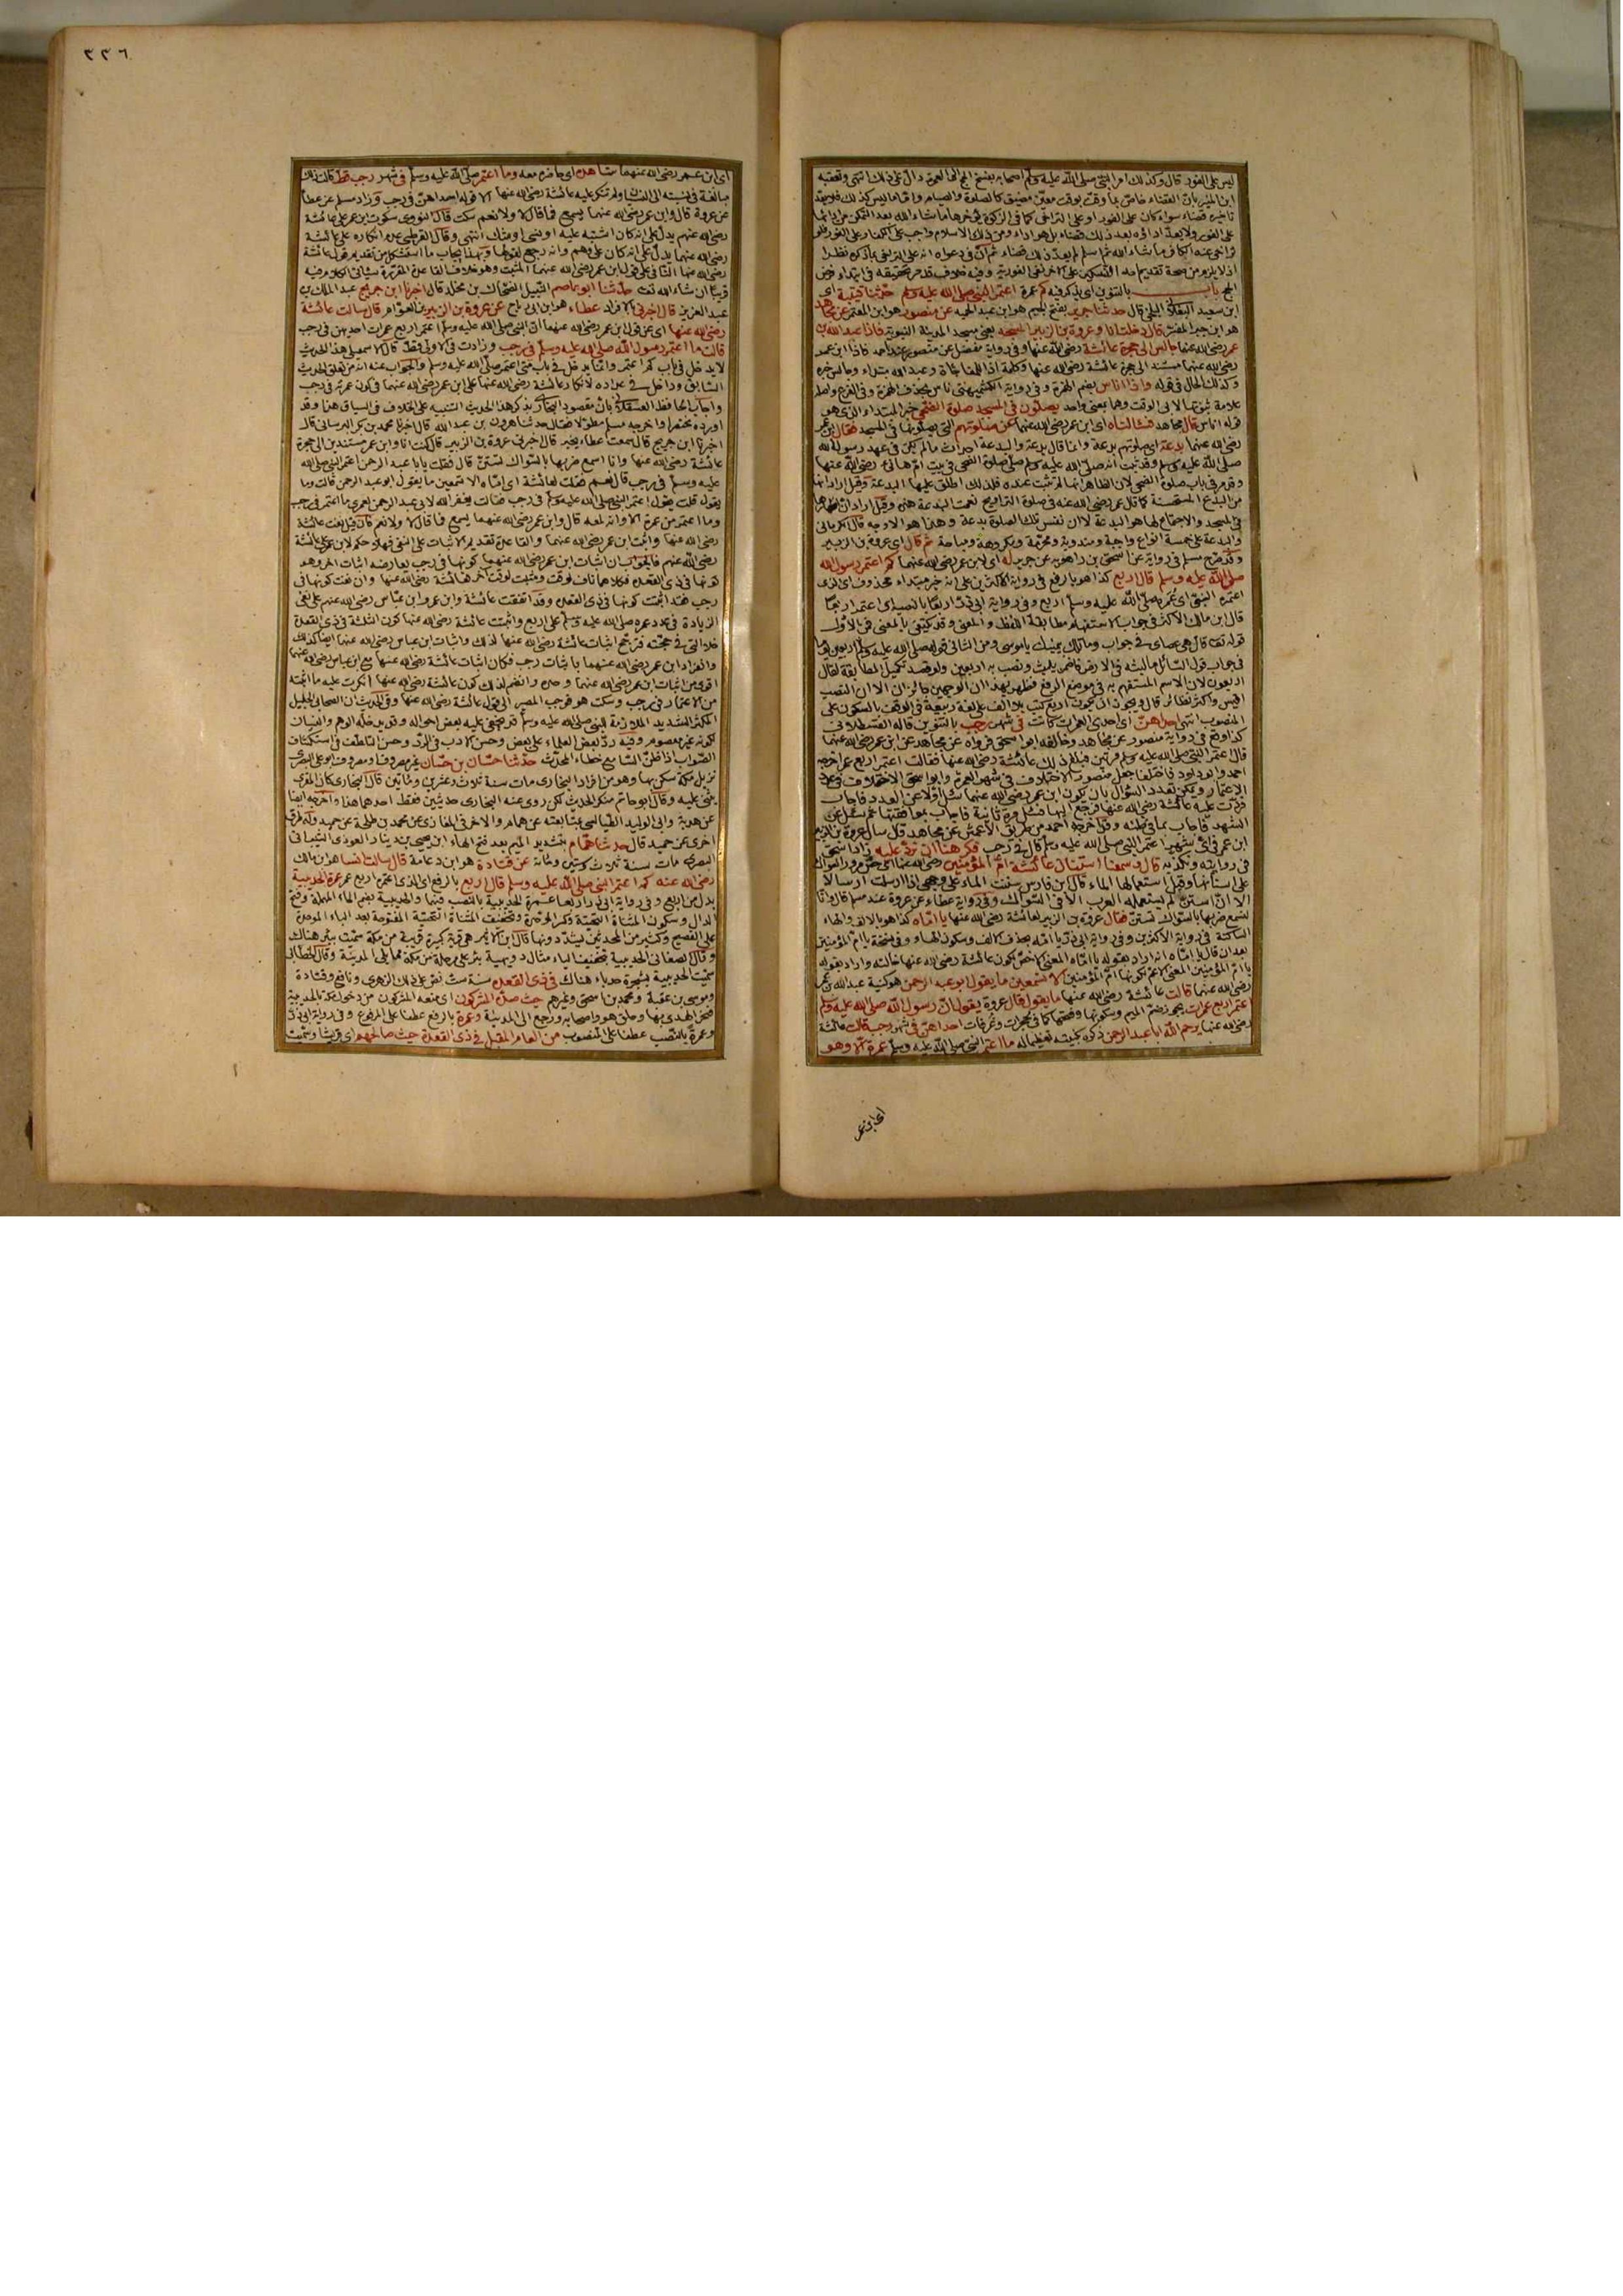 ليس على الفور قال وكذلك امر النبي صلى الله عليه وسلم اصحابه بفسخ الحج الى العمرة دال على ذلك انتهى وتعقبه
ابن المنير بان القضاء خاص بما وقت بوقت معين مضيق كالصلوة والصيام واما ما ليس كذلك فلا يعد
تاخيره قضاء سواء كان على الفور او على التراخي كما في الزكوة يؤخرها ما شاء الله بعد التمكن من ادائها
على الفور ولا يعد اداؤه بعد ذلك قضاء بل هو اداء ومن ذلك الاسلام واجب على الكفار على الفور فلو
تراخى عنه الكافر ما شاء الله ثم اسلم لم يعد ذلك قضاء
الحج باب بالتنوين اي يذكر فيه كم عمرة اعتمر النبي صلى الله عليه وسلم حدثنا قتيبة اي
ابن سعيد البغلاني البلخي قال حدثنا جرير بفتح الجيم هو ابن عبد الحميد عن منصور هو ابن المعتمر عن مجاهد
هو ابن جبر المفسر قال دخلت انا وعروة بن الزبير المسجد يعني مسجد المدينة النبوية فاذا عبد الله بن
عمر رضي الله عنهما جالس الى حجرة عائشة رضي الله عنها وفي رواية مفضل عن منصور عند احمد فاذا ابن عمر
رضي الله عنهما مستند الى حجرة عائشة رضي الله عنها وكلمة اذا للمفاجاة وعبد الله مبتداء وجالس خبره
وكذلك الحال في قوله واذا اناس بضم الهمزة وفي رواية الكشميهني ناس بحذف الهمزة
يصلون في المسجد صلوة الضحى خبر المبتداء الذي هو
قوله اناس قال مجاهد فسالناه اي ابن عمر رضي الله عنهما عن صلوتهم التي يصلونها في المسجد فقال ابن عمر
رضي الله عنهما بدعة اي صلوتهم بدعة وانما قال بدعة والبدعة احداث ما لم يكن في عهد رسول الله
صلى الله عليه وسلم وقد ثبت انه صلى الله عليه وسلم صلى صلوة الضحى في بيت ام هانئ رضي الله عنها
وقد مر في باب صلوة الضحى لان الظاهر انها لم تثبت عنده فلذلك اطلق عليها البدعة وقيل اراد انها
من البدع المستحسنة كما قال عمر رضي الله عنه في صلوة التراويح نعمت البدعة هذه وقيل اراد ان اظهارها
في المسجد والاجتماع لها هو البدعة لا ان نفس تلك الصلوة بدعة وهذا هو الاوجه قال الكرماني
والبدعة على خمسة انواع واجبة ومندوبة ومحرمة ومكروهة ومباحة ثم قال اي عروة بن الزبير
وقد صرح مسلم في روايته عن اسحق بن راهويه عن جرير له اي لابن عمر رضي الله عنهما كم اعتمر رسول الله
صلى الله عليه وسلم قال اربع كذا هو بالرفع في رواية الاكثرين على انه خبر مبتداء محذوف اي الذي
اعتمره النبي اي عمره صلى الله عليه وسلم اربع وفي رواية ابي ذر اربعا بالنصب اي اعتمر اربعا
قال ابن مالك الاكثر في جواب الاستفهام مطابقة اللفظ والمعنى وقد يكتفى بالمعنى فمن الاول
قوله تعالى قال هي عصاي في جواب وما تلك بيمينك يا موسى ومن الثاني قوله صلى الله عليه وسلم اربعين يوما
في جواب قول السائل ما لبثه في الارض فاضمر يلبث ونصب به اربعين ولو قصد تكميل المطابقة لقال
اربعون لان الاسم المستفهم به في موضع الرفع فظهر بهذا ان الوجهين جائزان الا ان النصب
اقيس واكثر نظائر قال ويجوز ان يكون اربع كتب بلا الف على لغة ربيعة في الوقف بالسكون على
المنصوب انتهى احداهن اي احدى العمرات كانت في شهر رجب بالتنوين قاله القسطلاني
كذا وقع في رواية منصور عن مجاهد وخالفه ابو اسحق فرواه عن مجاهد عن ابن عمر رضي الله عنهما
قال اعتمر النبي صلى الله عليه وسلم مرتين فبلغ ذلك عائشة رضي الله عنها فقالت اعتمر اربع عمر اخرجه
احمد وابو داود فاختلفا جعل منصور الاختلاف في شهر العمرة وابو اسحق الاختلاف في عدد
الاعتمار ويمكن تعدد السؤال بان يكون ابن عمر رضي الله عنهما سئل اولا عن العدد فاجاب
فردت عليه عائشة رضي الله عنها فرجع اليها فسئل مرة ثانية فاجاب بموافقتها ثم سئل عن
الشهر فاجاب بما في ظنه وقد اخرجه احمد من طريق الاعمش عن مجاهد قال سال عروة بن الزبير
ابن عمر في اي شهر اعتمر النبي صلى الله عليه وسلم قال في رجب فكرهنا ان نرد عليه زاد اسحق
في روايته ونكذبه قال وسمعنا استنان عائشة ام المؤمنين رضي الله عنها اي حس مرور السواك
على اسنانها وقيل استعمالها الماء قال ابن فارس سننت الماء على وجهي اذا ارسلته ارسالا
الا ان استن لم يستعمله العرب الا في السواك وفي رواية عطاء عن عروة عند مسلم قال وانا
لنسمع ضربها بالسواك تستن فقال عروة بن الزبير لعائشة رضي الله عنها يا اماه كذا هو بالالف والهاء
الساكنة في رواية الاكثرين وفي رواية ابي ذر يا امه بحذف الالف وسكون الهاء وفي نسخة يا ام المؤمنين
يا ام المؤمنين المعنى الاعم لكونها ام المؤمنين الا تسمعين ما يقول ابو عبد الرحمن هو كنية عبد الله بن عمر
رضي الله عنهما قالت عائشة رضي الله عنها ما يقول قال عروة يقول ان رسول الله صلى الله عليه وسلم
اعتمر اربع عمرات يجوز ضم الميم وسكونها وفتحها كما في حجرات وغرفات احداهن في شهر رجب قالت عائشة
رضي الله عنها يرحم الله ابا عبد الرحمن ذكره بكنيته تعظيما له ما اعتمر النبي صلى الله عليه وسلم عمرة الا وهو
اي ابن عمر
٣٣٦
اي ابن عمر رضي الله عنهما شاهده اي حاضر معه وما اعتمر صلى الله عليه وسلم في شهر رجب قط قالت ذلك
مبالغة في نسبته الى النسيان ولم تنكر عليه عائشة رضي الله عنها الا قوله احداهن في رجب وزاد مسلم عن عطاء
عن عروة قال وابن عمر رضي الله عنهما يسمع فما قال لا ولا نعم سكت قال النووي سكوت ابن عمر على عائشة
رضي الله عنهم يدل على انه كان اشتبه عليه او نسي او شك انتهى وقال القرطبي عدم انكاره على عائشة
رضي الله عنهما يدل على انه كان على وهم وانه رجع لقولها وبهذا يجاب ما استشكل من تقديم قول عائشة
رضي الله عنها النافي على قول ابن عمر رضي الله عنهما المثبت وهو خلاف القاعدة المقررة سياتي الكلام فيه
قريبا ان شاء الله تعالى حدثنا ابو عاصم النبيل الضحاك بن مخلد قال اخبرنا ابن جريج عبد الملك بن
عبد العزيز قال اخبرني بالافراد عطاء هو ابن ابي رباح عن عروة بن الزبير بن العوام قال سالت عائشة
رضي الله عنها اي عن قول ابن عمر رضي الله عنهما ان النبي صلى الله عليه وسلم اعتمر اربع عمرات احداهن في رجب
قالت ما اعتمر رسول الله صلى الله عليه وسلم في رجب وزادت في الاولى قط قال الاسمعيلي هذا الحديث
لا يدخل في باب كم اعتمر وانما يدخل في باب متى اعتمر صلى الله عليه وسلم والجواب عنه انه من تعلق الحديث
السابق وداخل في عداده لانكار عائشة رضي الله عنها على ابن عمر رضي الله عنهما في كون عمرته في رجب
واجاب الحافظ العسقلاني بان مقصود البخاري بذكر هذا الحديث التنبيه على الخلاف في السياق هذا وقد
اورده مختصرا واخرجه مسلم مطولا فقال حدثنا هرون بن عبد الله قال اخبرنا محمد بن بكر البرساني قال
اخبرنا ابن جريج قال سمعت عطاء يخبر قال اخبرني عروة بن الزبير قال كنت انا وابن عمر مستندين الى حجرة
عائشة رضي الله عنها وانا اسمع ضربها بالسواك تستن قال فقلت يا ابا عبد الرحمن اعتمر النبي صلى الله
عليه وسلم في رجب قال نعم فقلت لعائشة اي امتاه الا تسمعين ما يقول ابو عبد الرحمن قالت وما
يقول قلت يقول اعتمر النبي صلى الله عليه وسلم في رجب فقالت يغفر الله لابي عبد الرحمن لعمري ما اعتمر في رجب
وما اعتمر من عمرة الا وانه لمعه قال وابن عمر رضي الله عنهما يسمع فما قال لا ولا نعم فان قيل نفت عائشة
رضي الله عنها واثبت ابن عمر رضي الله عنهما والقاعدة تقديم الاثبات على النفي فهلا حكم لابن عمر على عائشة
رضي الله عنهم فالجواب ان اثبات ابن عمر رضي الله عنهما كونها في رجب يعارضه اثبات اخر وهو
كونها في ذي القعدة فكلاهما ناف لوقت ومثبت لوقت اخر فعائشة رضي الله عنها وان نفت كونها في
رجب فقد اثبتت كونها في ذي القعدة وقد اتفقت عائشة وابن عمر وابن عباس رضي الله عنهم على نفي
الزيادة في عدد عمره صلى الله عليه وسلم على اربع واثبتت عائشة رضي الله عنها كون الثلثة في ذي القعدة
خلا التي في حجته فترجح اثبات عائشة رضي الله عنها لذلك واثبات ابن عباس رضي الله عنهما ايضا كذلك
وانفراد ابن عمر رضي الله عنهما باثبات رجب فكان اثبات عائشة رضي الله عنها مع ابن عباس رضي الله عنهما
اقوى من اثبات ابن عمر رضي الله عنهما وحده وانضم لذلك كون عائشة رضي الله عنها انكرت عليه ما اثبته
من الاعتمار في رجب وسكت هو فوجب المصير الى قول عائشة رضي الله عنها وفي الحديث ان الصحابي الجليل
المكثر الشديد الملازمة للنبي صلى الله عليه وسلم قد يخفى عليه بعض احواله وقد يدخله الوهم والنسيان
لكونه غير معصوم وفيه رد بعض العلماء على بعض وحسن الادب في الرد وحسن التلطف في استكشاف
الصواب اذا ظن السامع خطاء المحدث حدثنا حسان بن حسان غير مصروف ومصروف ابو علي البصري
نزيل مكة سكن بها وهو من افراد البخاري مات سنة ثلاث وعشرين ومأتين قال البخاري كان المقري
يثني عليه وقال ابو حاتم منكر الحديث لكن روى عنه البخاري حديثين فقط احدهما هذا واخرجه ايضا
عن هدبة وابي الوليد الطيالسي بمتابعته عن همام والاخر في المغازي عن محمد بن طلحة عن حميد وله طرق
اخرى عن حميد قال حدثنا همام بتشديد الميم بعد فتح الهاء ابن يحيى بن دينار العوذي الشيباني
البصري مات سنة ثلاث وستين ومائة عن قتادة هو ابن دعامة قال سالت انسا هو ابن مالك
رضي الله عنه كم اعتمر النبي صلى الله عليه وسلم قال اربع بالرفع اي الذي اعتمره اربع عمر عمرة الحديبية
بدل من اربع وفي رواية ابي ذر اربعا عمرة الحديبية بالنصب فيهما والحديبية بضم الحاء المهملة وفتح
الدال وسكون المثناة التحتية وكسر الموحدة وتخفيف المثناة التحتية المفتوحة بعد الباء الموحدة
على الفصيح وكثير من المحدثين يشددونها قال ابن الاثير هي قرية كبيرة قريبة من مكة سميت ببئر هناك
وقال الصغاني الحديبية بتخفيف الياء مثال دويهية بئر على مرحلة من مكة مما يلي المدينة وقال الخطابي
سميت الحديبية بشجرة حدباء هناك في ذي القعدة سنة ست نص على ذلك الزهري ونافع وقتادة
وموسى بن عقبة ومحمد بن اسحق وغيرهم حيث صده المشركون اي منعه المشركون من دخول مكة بالحديبية
فنحر الهدي بها وحلق هو واصحابه ورجع الى المدينة وعمرة بالرفع عطفا على المرفوع وفي رواية ابي ذر
وعمرة بالنصب عطفا على المنصوب من العام المقبل في ذي القعدة حيث صالحهم اي قريشا وسميت